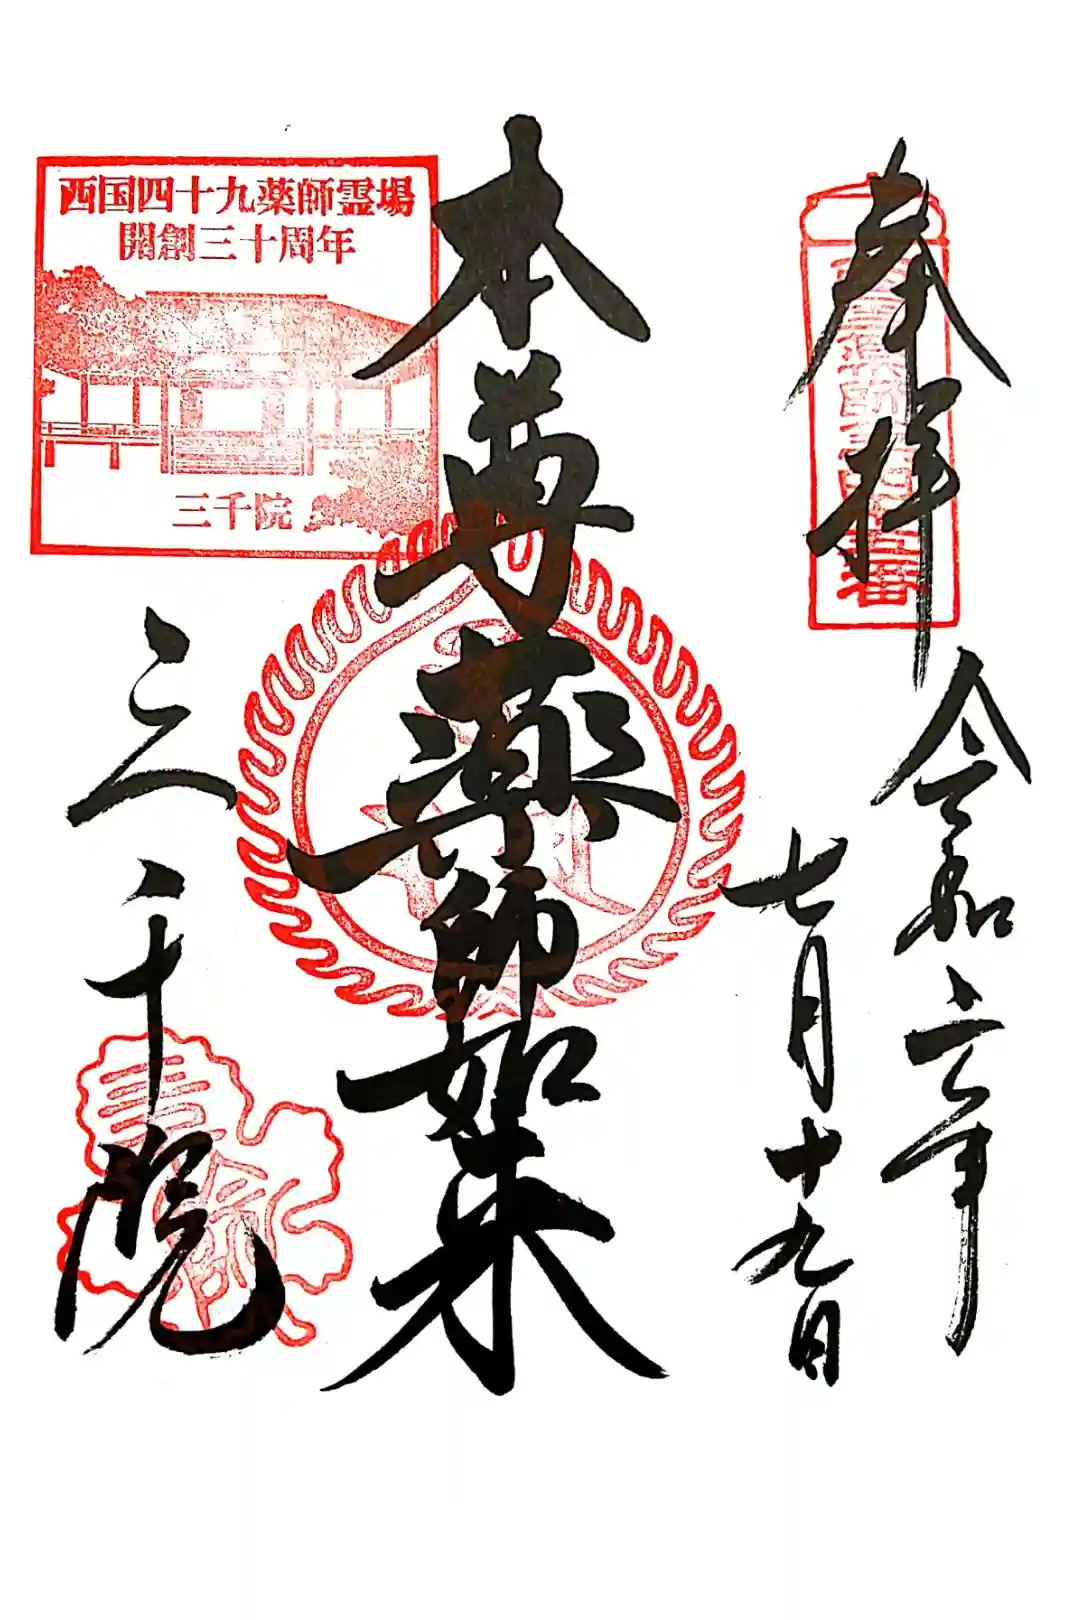 奉拝
令和六年
七月十九日
本尊薬師如来
西国四十九薬師霊場
開創三十周年
三千院
三千院